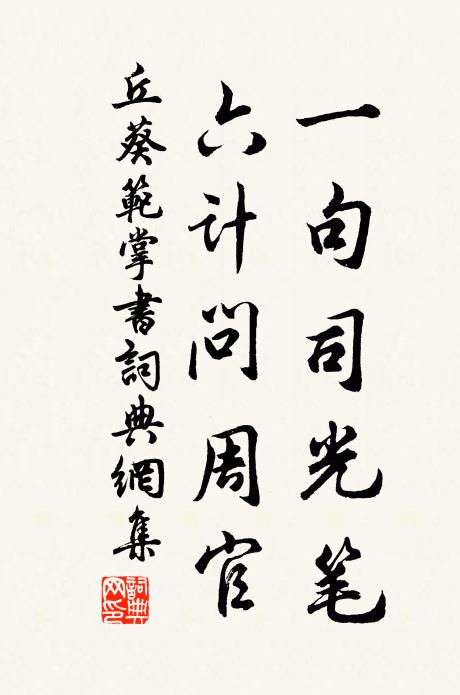 一句司光笔
六计问周官
丘葵範掌書詞典網集
詞典
网印